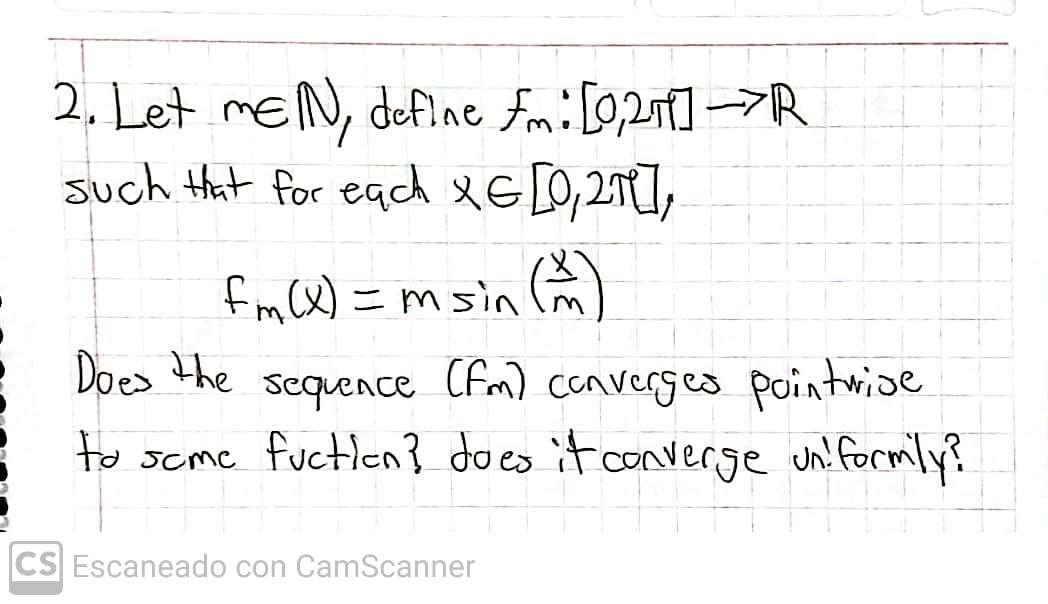 2. Let m∈ℕ, define fm:[0,2π]→ℝ
such that for each x∈[0,2π],
fm(x) = m sin (x/m)
Does the sequence (fm) converges pointwise
to some fuction? does it converge uniformily?
CS Escaneado con CamScanner